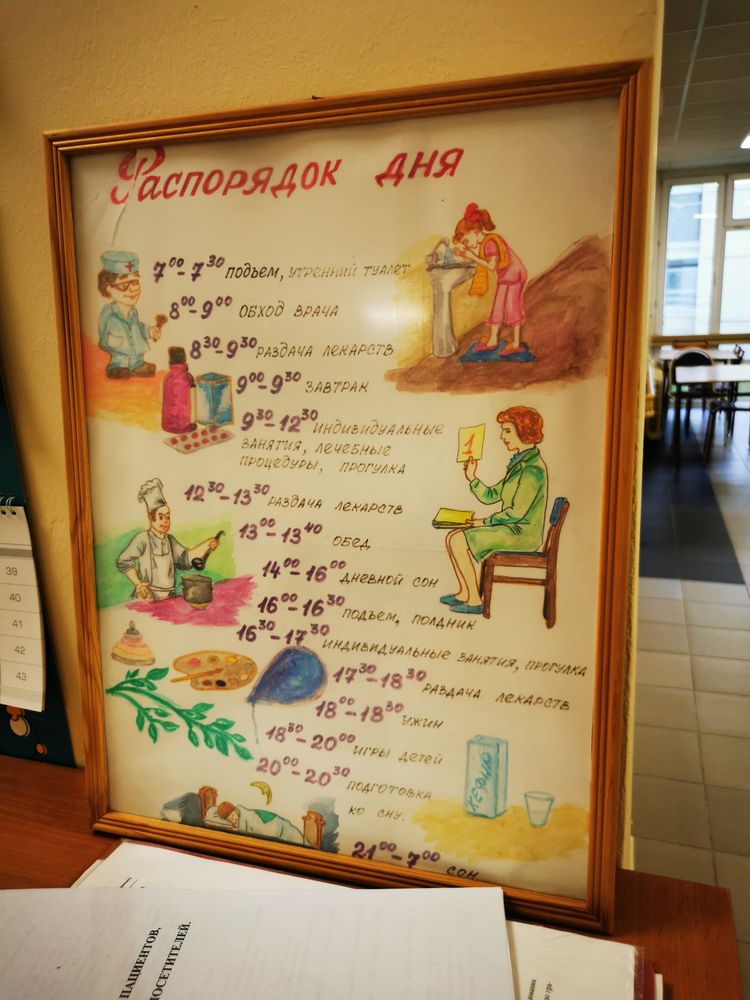 Распорядок дня
7⁰⁰-7³⁰ подъем, утренний туалет
8⁰⁰-9⁰⁰ обход врача
8³⁰-9³⁰ раздача лекарств
9⁰⁰-9³⁰ завтрак
9³⁰-12³⁰ индивидуальные
занятия, лечебные
процедуры, прогулка
1
12³⁰-13³⁰ раздача лекарств
13⁰⁰-13⁴⁰ обед
14⁰⁰-16⁰⁰ дневной сон
16⁰⁰-16³⁰ подъем, полдник
16³⁰-17³⁰ индивидуальные занятия, прогулка
17³⁰-18³⁰ раздача лекарств
18⁰⁰-18³⁰ ужин
18³⁰-20⁰⁰ игры детей
20⁰⁰-20³⁰ подготовка
ко сну.
КЕФИР
21⁰⁰-7⁰⁰ сон
39
40
41
42
43
ПАЦИЕНТОВ,
ПОСЕТИТЕЛЕЙ.